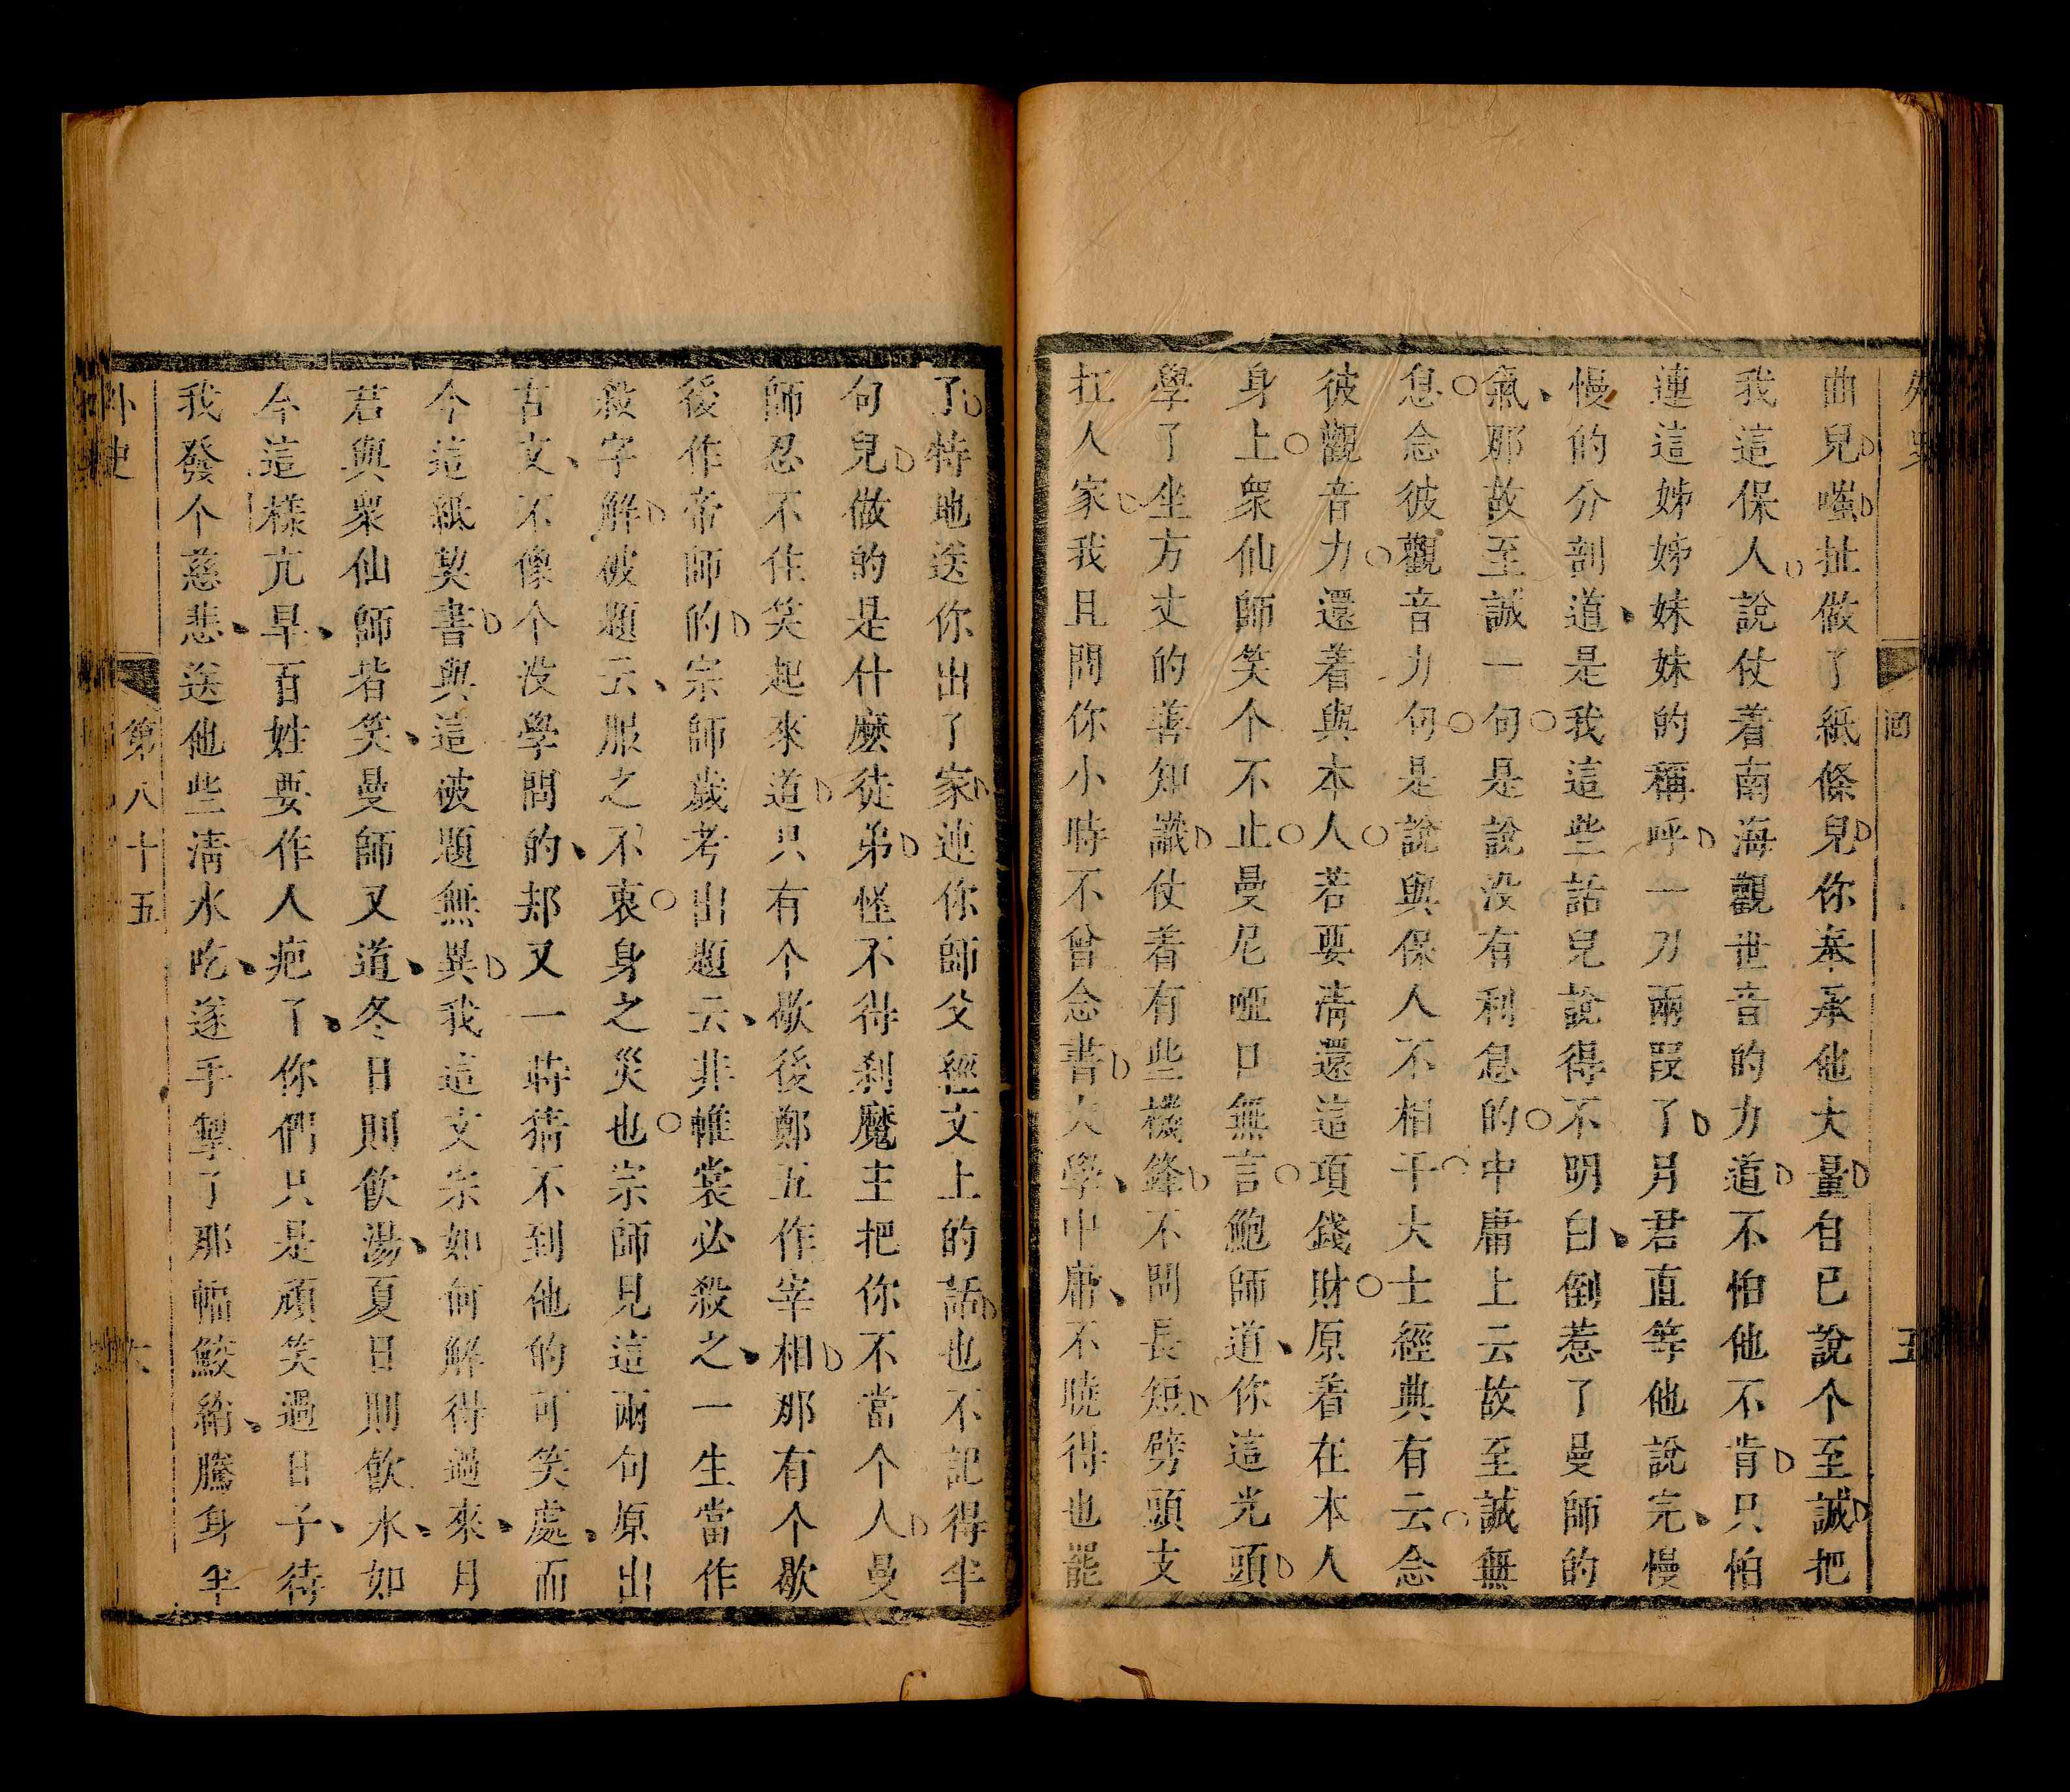 外史
五
曲兒嗤扯做了紙條兒你奉承他大量自己說个至誠把
我這保人說仗着南海觀世音的力道不怕他不肯只怕
連這姊姊妹妹的稱呼一刀兩段了月君直等他說完慢
慢的分剖道是我這些話兒說得不明白倒惹了曼師的
氣那故至誠一句是說没有利息的中庸上云故至誠無
息念彼觀音力句是說與保人不相干大士經典有云念
彼觀音力還着與本人若要清還這項錢財原着在本人
身上衆仙師笑个不止曼尼啞口無言鮑師道你這光頭
學了坐方丈的善知識仗着有些機鋒不問長短劈頭支
扛人家我且問你小時不曾念書大學中庸不曉得也罷
了特地送你出了家連你師父經文上的話也不記得半
句兒做的是什麽徒弟怪不得刹魔主把你不當个人曼
師忍不住笑起來道只有个歇後鄭五作宰相那有个歇
後作帝師的宗師歲考出題云非帷裳必殺之一生當作
殺字解破題云服之不衷身之災也宗師見這兩句原出
古文不像个没學問的却又一時猜不到他的可笑處而
今這紙契書與這破題無異我這文宗如何解得過來月
君與衆仙師皆笑曼師又道冬日則飲湯夏日則飲水如
今這樣亢旱百姓要作人疤了你們只是頑笑過日子待
我發个慈悲送他些清水吃遂手掣了那幅鮫綃騰身半
外史
第八十五
六